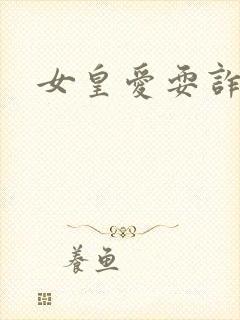 女皇愛耍詐
養魚